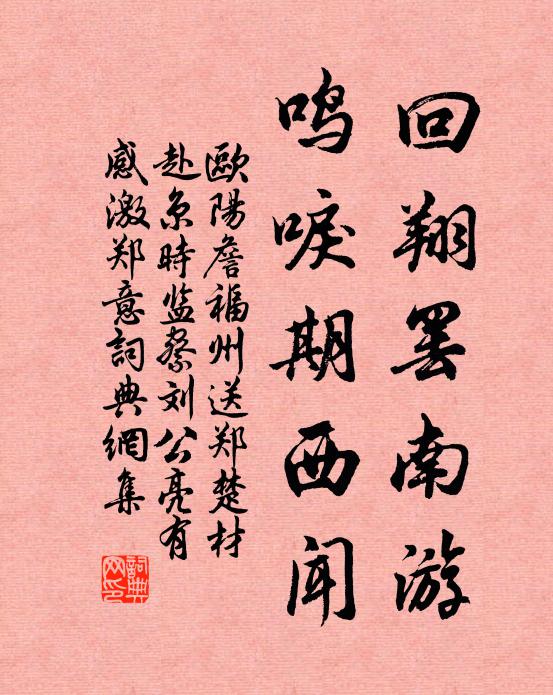 回翔罢南游
鸣唳期西闻
歐陽詹福州送郑楚材
赴京時监察刘公亮有
感激郑意詞典網集
詞典网印